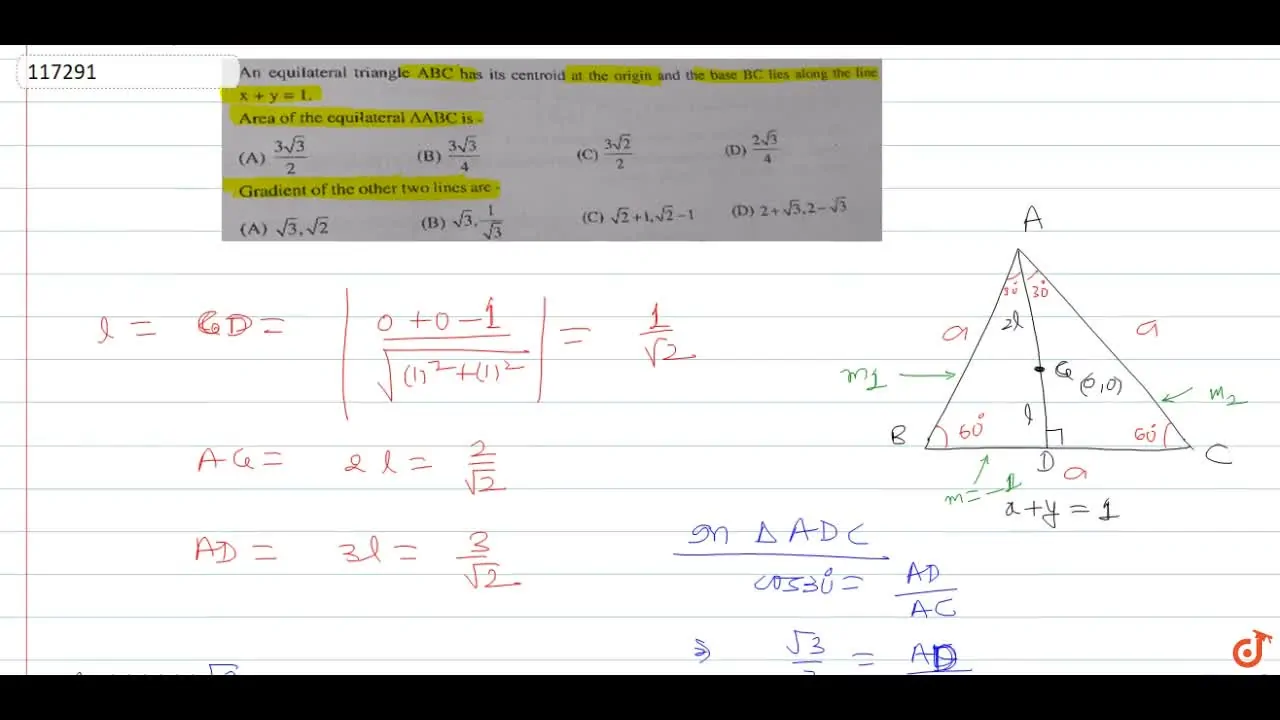 117291
An equilateral triangle ABC has its centroid at the origin and the base BC lies along the line
x + y = 1.
Area of the equilateral ΔABC is -
(A) 3√3/2 (B) 3√3/4 (C) 3√2/2 (D) 2√3/4
Gradient of the other two lines are -
(A) √3, √2 (B) √3, 1/√3 (C) √2+1, √2−1 (D) 2+√3, 2−√3
A
30° 30°
2l
a a
m1 G (0,0) m2
l
B 60° 60° C
D
m=-1 a
x+y=1
l = GD = |0+0-1/√(1)²+(1)²| = 1/√2
AG = 2l = 2/√2
AD = 3l = 3/√2
In Δ ADC
cos30° = AD/AC
⇒ √3/2 = AD